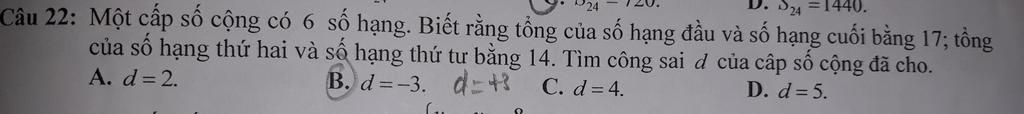 D. S₂₄ = 1440.
Câu 22: Một cấp số cộng có 6 số hạng. Biết rằng tổng của số hạng đầu và số hạng cuối bằng 17; tổng
của số hạng thứ hai và số hạng thứ tư bằng 14. Tìm công sai d của câp số cộng đã cho.
A. d = 2. B. d = −3. d = +3 C. d = 4. D. d = 5.